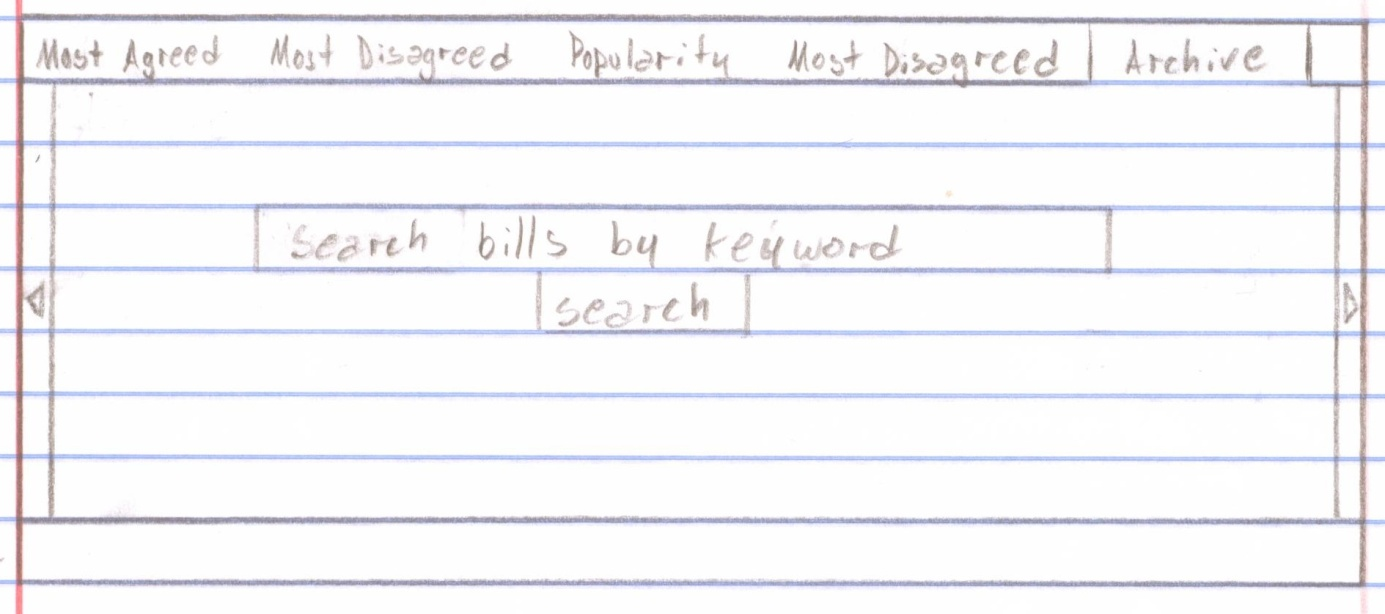 Most Agreed Most Disagreed Popularity Most Disagreed Archive
Search bills by keyword
search